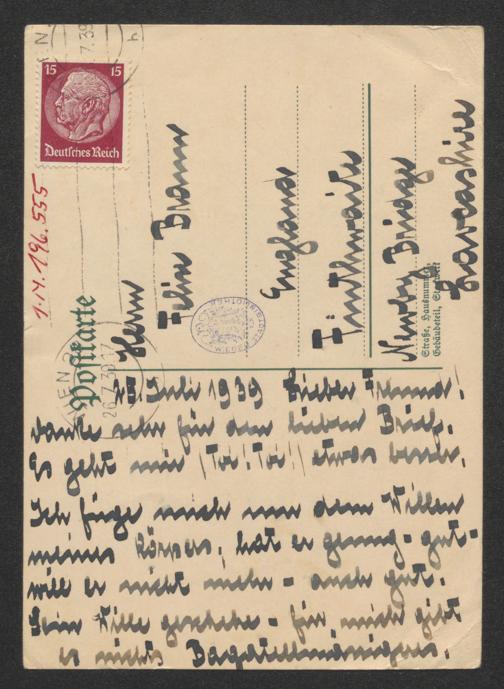 15 15
Deutsches Reich
I.N. 196.555
Postkarte
Herrn
Felix Braun
England
Finsthwaite
Newby Bridge
Lancashire
Straße, Hausnummer,
Gebäudeteil,
26.7.39
25 Juli 1939 Lieber Freund!
danke sehr für den lieben Brief.
Es geht mir (Toi! Toi!) etwas besser.
Ich füge mich nur dem Willen
meines Körpers, hat er genug - gut -
will er nicht mehr - auch gut.
Sein Wille geschehe - für mich gibt
es nichts Bagatellmässigeres.